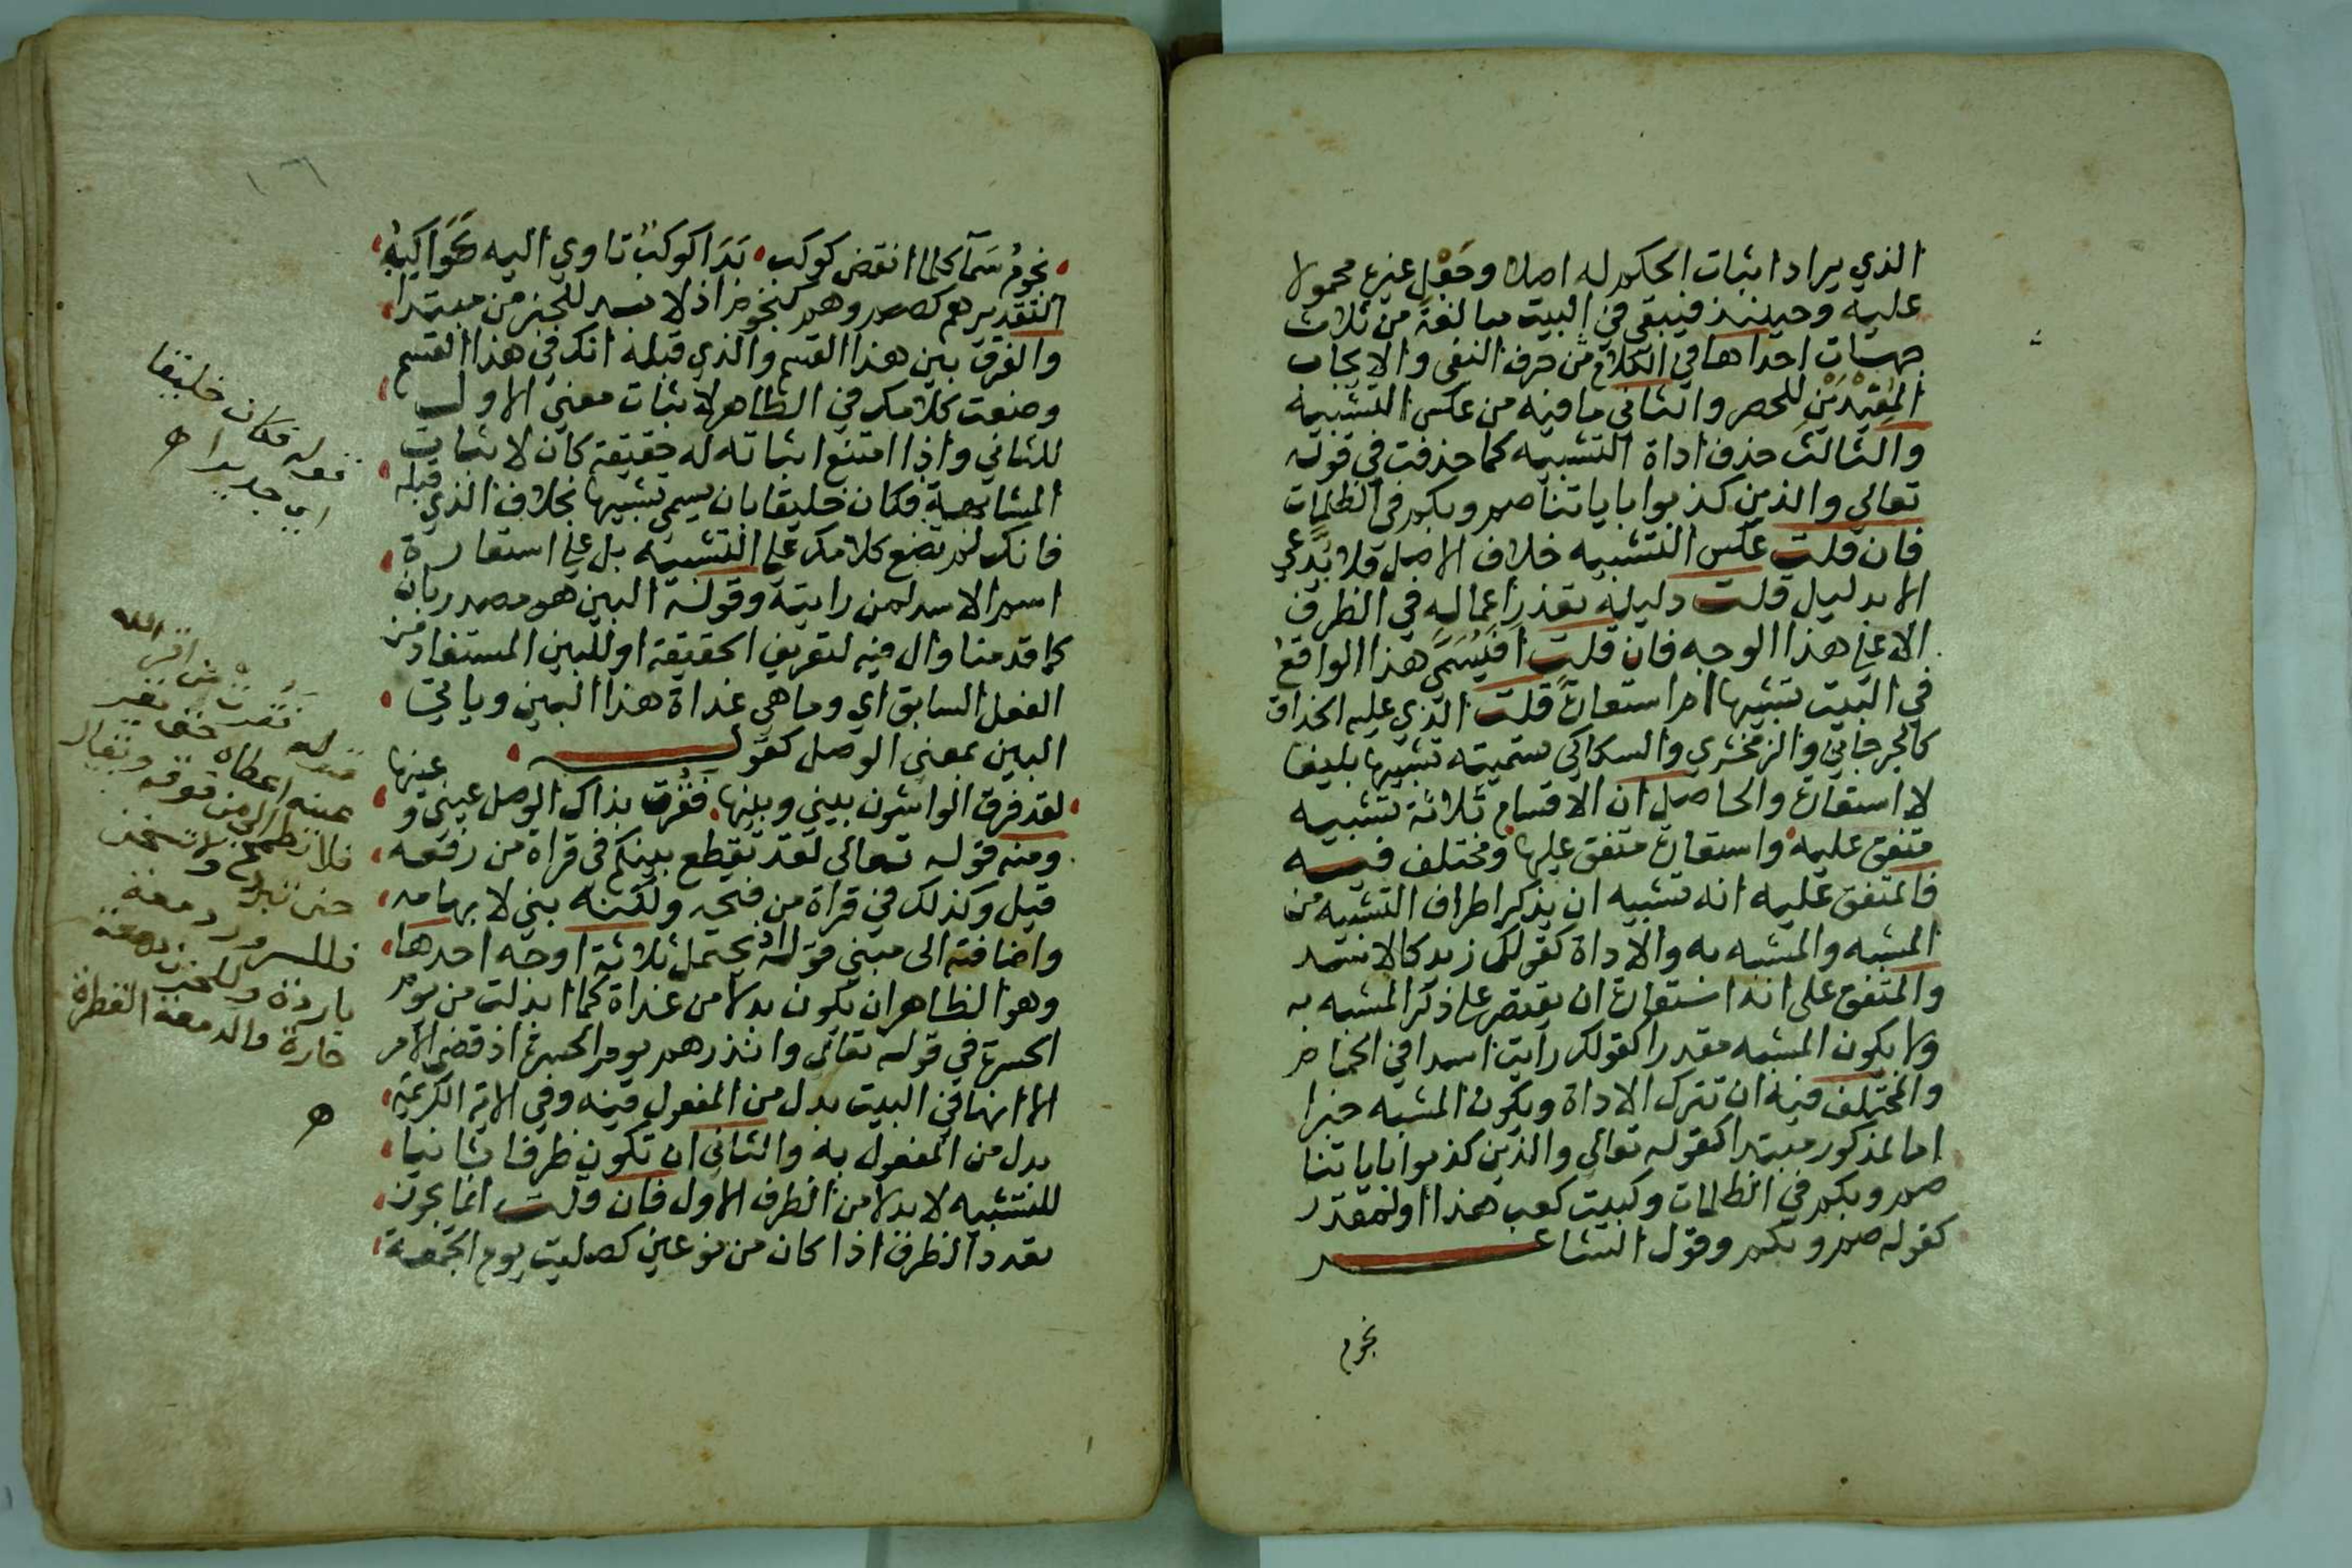 الذي يراد اثبات الحكم له اصلا وجعل غيره محمولا
عليه وحينئذ فيبقى في البيت مبالغة من ثلاث
جهات احداها في الكلام من حرف النفي والايجاب
المفيدين للحصر والثاني ما فيه من عكس التشبيه
والثالث حذف اداة التشبيه كما حذفت في قوله
تعالى والذين كذبوا باياتنا صم وبكم في الظلمات
فان قلت عكس التشبيه خلاف الاصل فلا يدعى
الا بدليل قلت دليله تعذر اعماله في الظرف
الا على هذا الوجه فان قلت افيسمى هذا الواقع
في البيت تشبيها ام استعارة قلت الذي عليه الحذاق
كالجرجاني والزمخشري والسكاكي تسميته تشبيها بليغا
لا استعارة والحاصل ان الاقسام ثلاثة تشبيه
متفق عليه واستعارة متفق عليها ومختلف فيه
فالمتفق عليه انه تشبيه ان يذكر اطراف التشبيه من
المشبه والمشبه به والاداة كقولك زيد كالاسد
والمتفق على انه استعارة ان يقتصر على ذكر المشبه به
ولا يكون المشبه مقدرا كقولك رايت اسدا في الحمام
والمختلف فيه ان تترك الاداة ويكون المشبه خبرا
اما لمذكور مبتدا كقوله تعالى والذين كذبوا باياتنا
صم وبكم في الظلمات وكبيت كعب هذا او لمقدر
كقوله صم وبكم وقول الشاعر
نجوم
نجوم سمآ كلما انقض كوكب بدا كوكب تاوي اليه كواكبه
التقدير هم كصم وهم كنجوم اذ لا بد للخبر من مبتدا
والفرق بين هذا القسم والذي قبله انك في هذا القسم
وضعت كلامك في الظاهر لاثبات معنى الاول
للثاني واذا امتنع اثباته له حقيقة كان لاثبات
المشابهة فكان خليقا بان يسمى تشبيها بخلاف الذي قبله
فانك لم تضع كلامك على التشبيه بل على استعارة
اسم الاسد لمن رايته وقوله البين هو مصدر بان
كما قدمنا وال فيه لتعريف الحقيقة او للبين المستفاد من
الفعل السابق اي وما هي غداة هذا البين وياتي
البين بمعنى الوصل كقوله
لقد فرق الواشون بيني وبينها فقرت بذاك الوصل عيني وعينها
ومنه قوله تعالى لقد تقطع بينكم في قراة من رفعه
قيل وكذلك في قراة من فتحه ولكنه بني لابهامه
واضافته الى مبني قوله اذ يحتمل ثلاثة اوجه احدها
وهو الظاهر ان يكون بدلا من غداة كما ابدلت من يوم
الحسرة في قوله تعالى وانذرهم يوم الحسرة اذ قضي الامر
الا انها في البيت بدل من المفعول فيه وفي الاية الكريمة
بدل من المفعول به والثاني ان تكون ظرفا ثانيا
للتشبيه لا بدلا من الظرف الاول فان قلت انما يجوز
تعدد الظرف اذا كان من نوعين كصليت يوم الجمعة
قوله فكان خليقا
اي جديرا اه
قوله فقرت من اقر الله
عينه اعطاه حتى تقر
فلا تطمح الى من فوقه ويقال
حتى تبرد ولا تسخن
فللسرور دمعة
باردة وللحزن دمعة
حارة والدمعة القطرة
اه
١٦